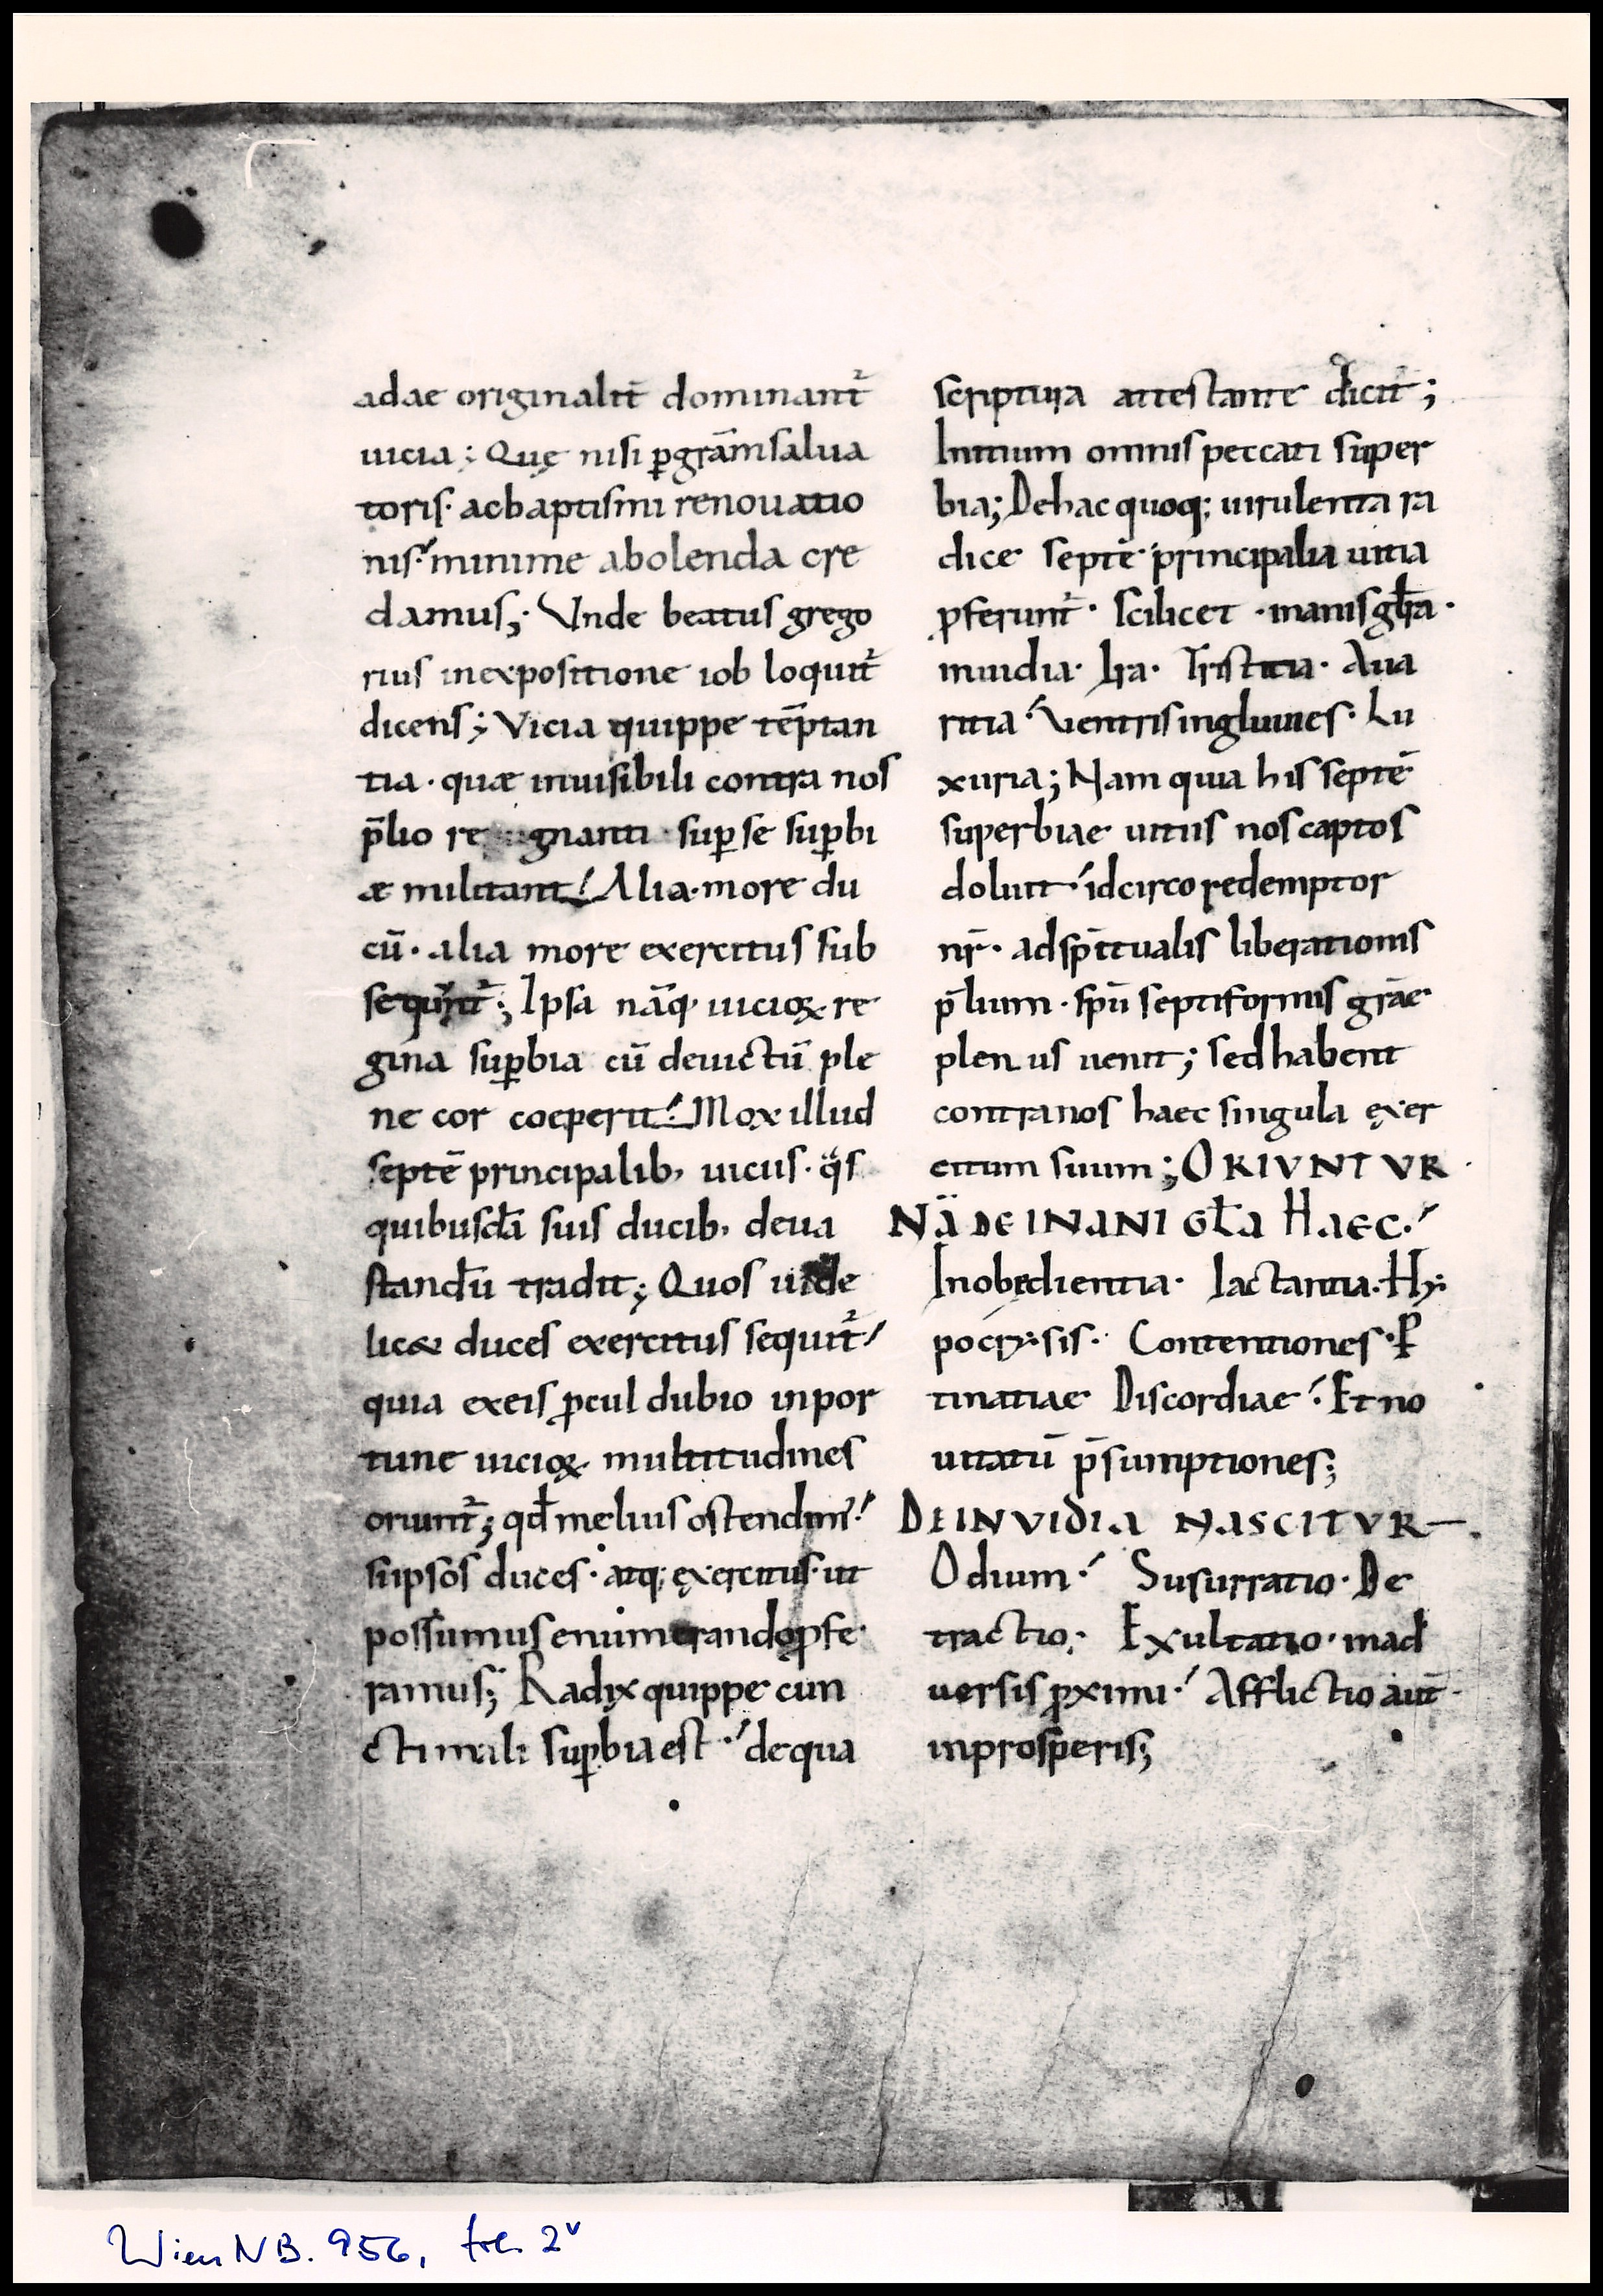 adae originalit̄ dominant᷑
uicia ; Quę nisi ꝑ gr̄am salua
toris · ac baptismi renouatio
nis ·́ minime abolenda cre
damus ; Vnde beatus grego
rius in expositione iob loquit᷑
dicens ; Vicia quippe tēptan
tia · quæ inuisibili contra nos
p̄lio re gnanti · suꝑ se suꝑbi
æ militant ·́ Alia · more du
cū · alia more exercitus sub
sequnt᷑ ; Ipsa nāq · uicioꝝ re
gina suꝑbia cū deuictū ple
ne cor coeperit ·́ Mox illud
septē principalib, uiciis · q̈s
quibusdā suis ducib, deua
standū tradit ; Quos uide
lic& duces exercitus sequit᷑ /
quia ex eis ꝓcul dubio inpor
tune uicioꝝ multitudines
oriunt᷑ ; qd̄ melius ostendim᷒ ·́
si ipsos duces · atq; exercitus · ut
possumus enumerando ꝓfe
ramus ; Radix quippe cun
cti mali suꝑbia est ·́ de qua
scriptura attestante dicit᷑ ;
Initium omnis peccati super
bia ; De hac quoq; uirulenta ra
dice septē principalia uitia
ꝓferunt᷑ · scilicet · inanis gl̄ia ·
inuidia · Ira · Tristitia · Aua
ritia ·́ Ventris ingluuies · Lu
xuria ; Nam quia his septē
superbiae uitiis nos captos
doluit ·́ idcirco redemptor
nr̄ · ad sp̄itualis liberationis
p̄lium · sp̄u septiformis grāe
plenus uenit ; sed habent
contra nos haec singula exer
citum suum ; ORIVNTVR
NĀ DE INANI GL̄A HAEC ·́
Inobedientia · Iactantia · Hy
pocrysis · Contentiones · Ꝑ
tinatiae Discordiae ·́ Et no
uitatū p̄sumptiones ;
DE INVIDIA NASCITVR
Odium ·́ Susurratio · De
tractio · Exultatio · in ad
uersis ꝓximi ·́ Afflictio aut̄
in prosperis ;
Wien NB. 956, fol. 2v